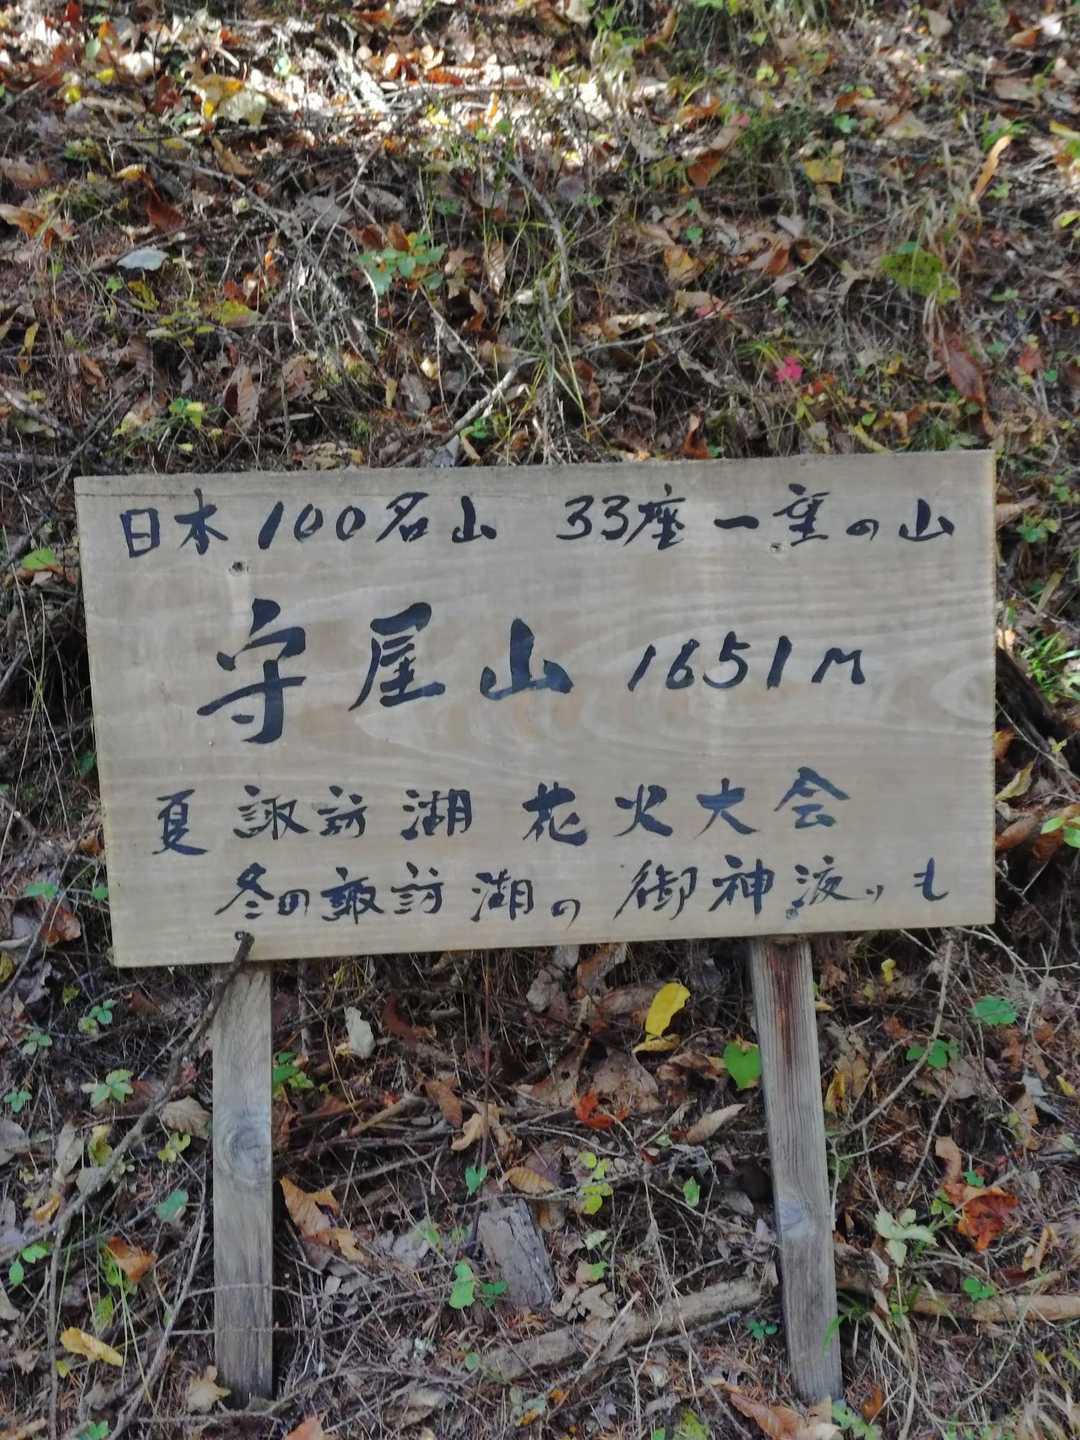 日本100名山 33座一望の山
守屋山 1651M
夏 諏訪湖 花火大会
冬の諏訪湖の御神渡りも